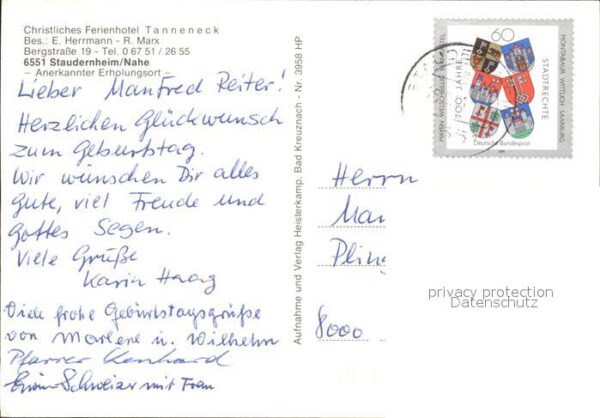 Christliches Ferienhotel Tanneneck
Bes.: E. Herrmann - R. Marx
Bergstraße 19 - Tel. 0 67 51 / 26 55
6551 Staudernheim/Nahe
— Anerkannter Erholungsort —
Lieber Manfred Reiter!
Herzlichen Glückwunsch
zum Geburtstag.
Wir wünschen Dir alles
Gute, viel Freude und
Gottes Segen.
Viele Grüße
Karin Haag
Viele frohe Geburtstagsgrüße
von Marlene u. Wilhelm
Pfarrer
Schweizer mit Frau
Aufnahme und Verlag Heisterkamp, Bad Kreuznach - Nr. 3958 HP
60
STADTRECHTE
MONTABAUR, WITTLICH, SAARBURG
700 JAHRE
Deutsche Bundespost
Herrn
Man
8000
privacy protection
Datenschutz